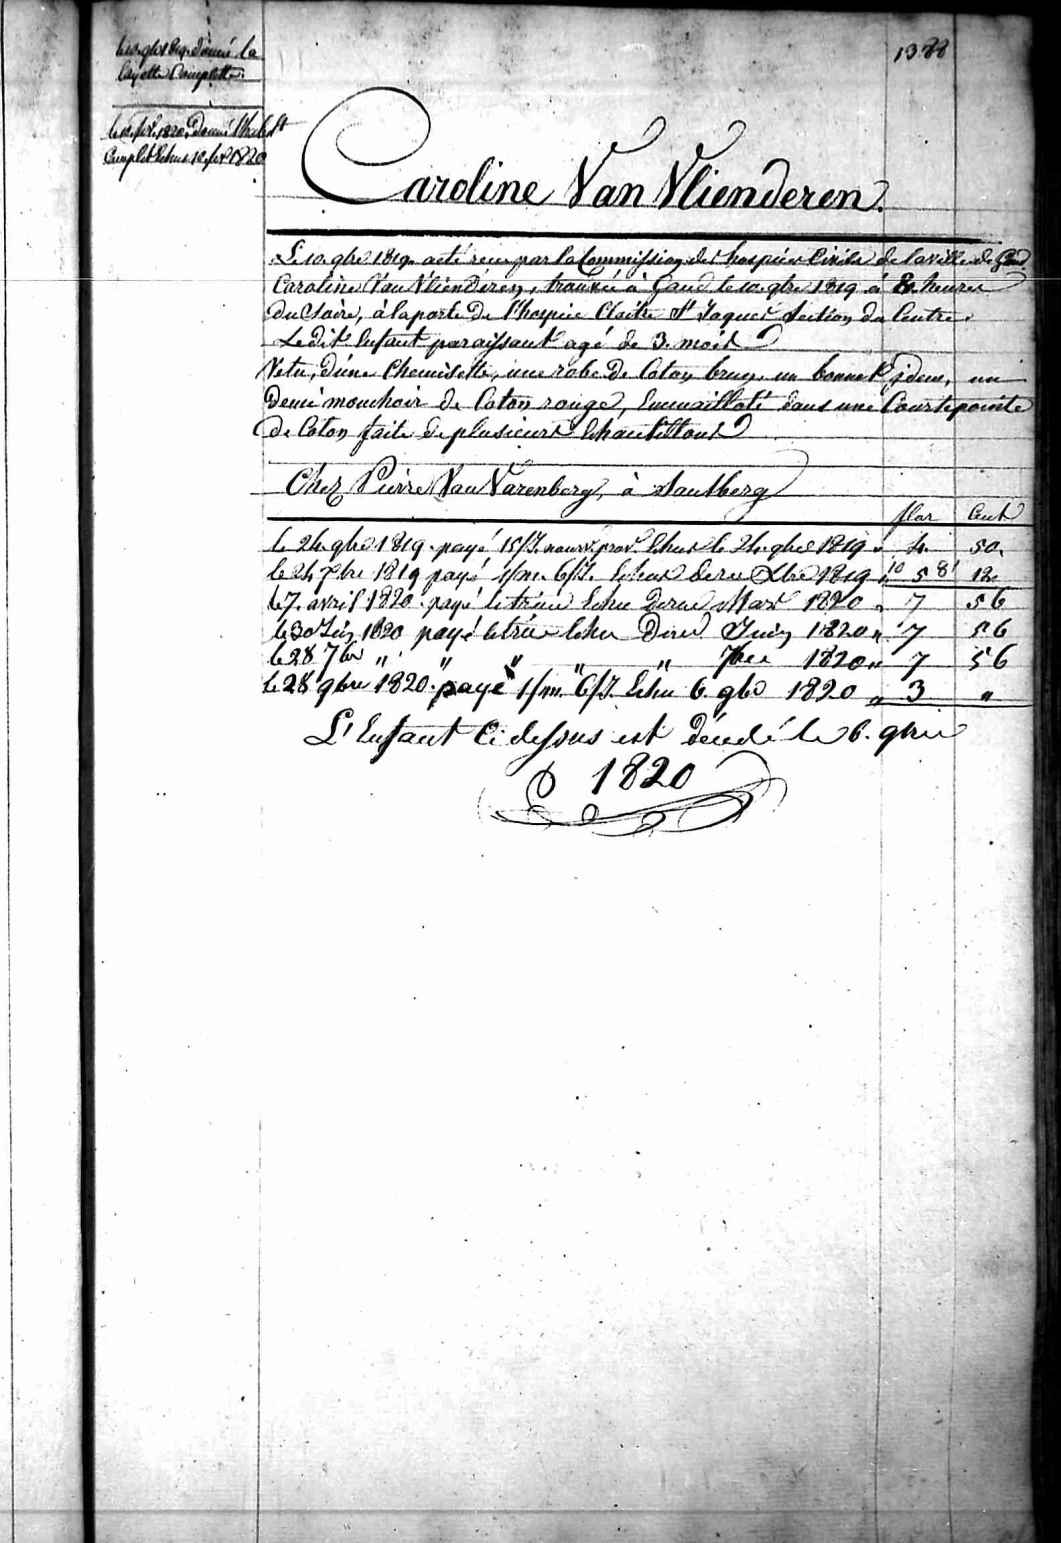 1388
le 10 gbre 1819 donné la
layette Complette.
le 10 fev. 1820 Donné l'habt
Complet Echus 10 fevr 1820
Caroline Van Vlienderen.
Le 10 gbre 1819 acté reçu par la Commission des hospices Civils de la ville de Gand
Caroline Van Vlienderen, trouvée à Gand le 10 gbre 1819 à 8 heures
du Soire, à la porte de l'hospice Cloitre St Jaques Section du Centre.
Ledit Enfant paraissant agé de 3. mois
Vetu, d'une Chemisette, une robe de Coton brun, un bonnet idem, un
demi mouchoir de Coton rouge, Emmailloté dans une Courtepointe
de Coton faite de plusieurs Echantillons
Chez Pierre Van Varenberg, à
flor Cent
le 24 gbre 1819 payé 15/J. nourr. prov. Echus le 24 gbre 1819 " 4. 50.
le 24 Xbre 1819 payé 1/m. 6/J. Echus Xbre 1819 " 10 5 81 12
le 7. avril 1820 payé le trim Echu Mars 1820 " 7 56
le 30 Juin 1820 payé le trim Echu Juin 1820 " 7 56
le 28 7bre " " " " 7bre 1820 " 7 56
le 28 gbre 1820 payé 1/m. 6/J. Echu 6 gbre 1820 " 3 "
L'Enfant Ci dessus est décédé le 6. gbre
1820